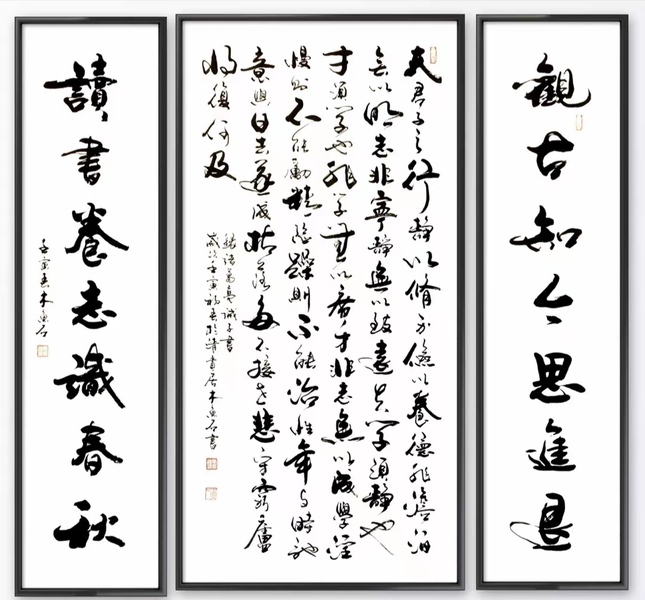 觀古知今思進退
夫君子之行靜以脩身儉以養德非澹泊
無以明志非寧靜無以致遠夫學須靜也
才須學也非學無以廣才非志無以成學淫
慢則不能勵精險躁則不能治性年與時馳
意與日去遂成枯落多不接世悲守窮廬
將復何及
録諸葛亮誡子書
歲次壬寅初春於清書居木魚石書
讀書養志識春秋
壬寅春木魚石